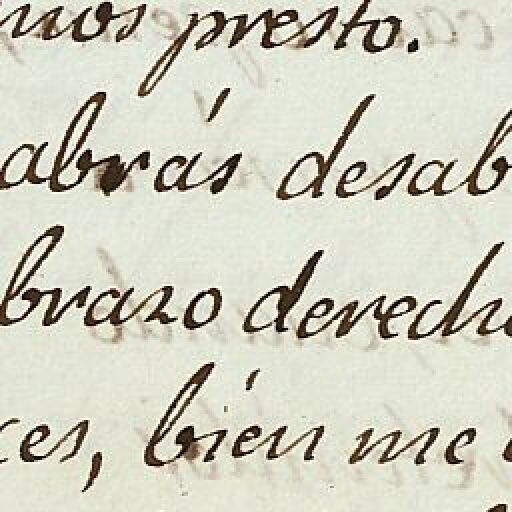 mos presto.
abrás desab
brazo derecho
ces, bién me